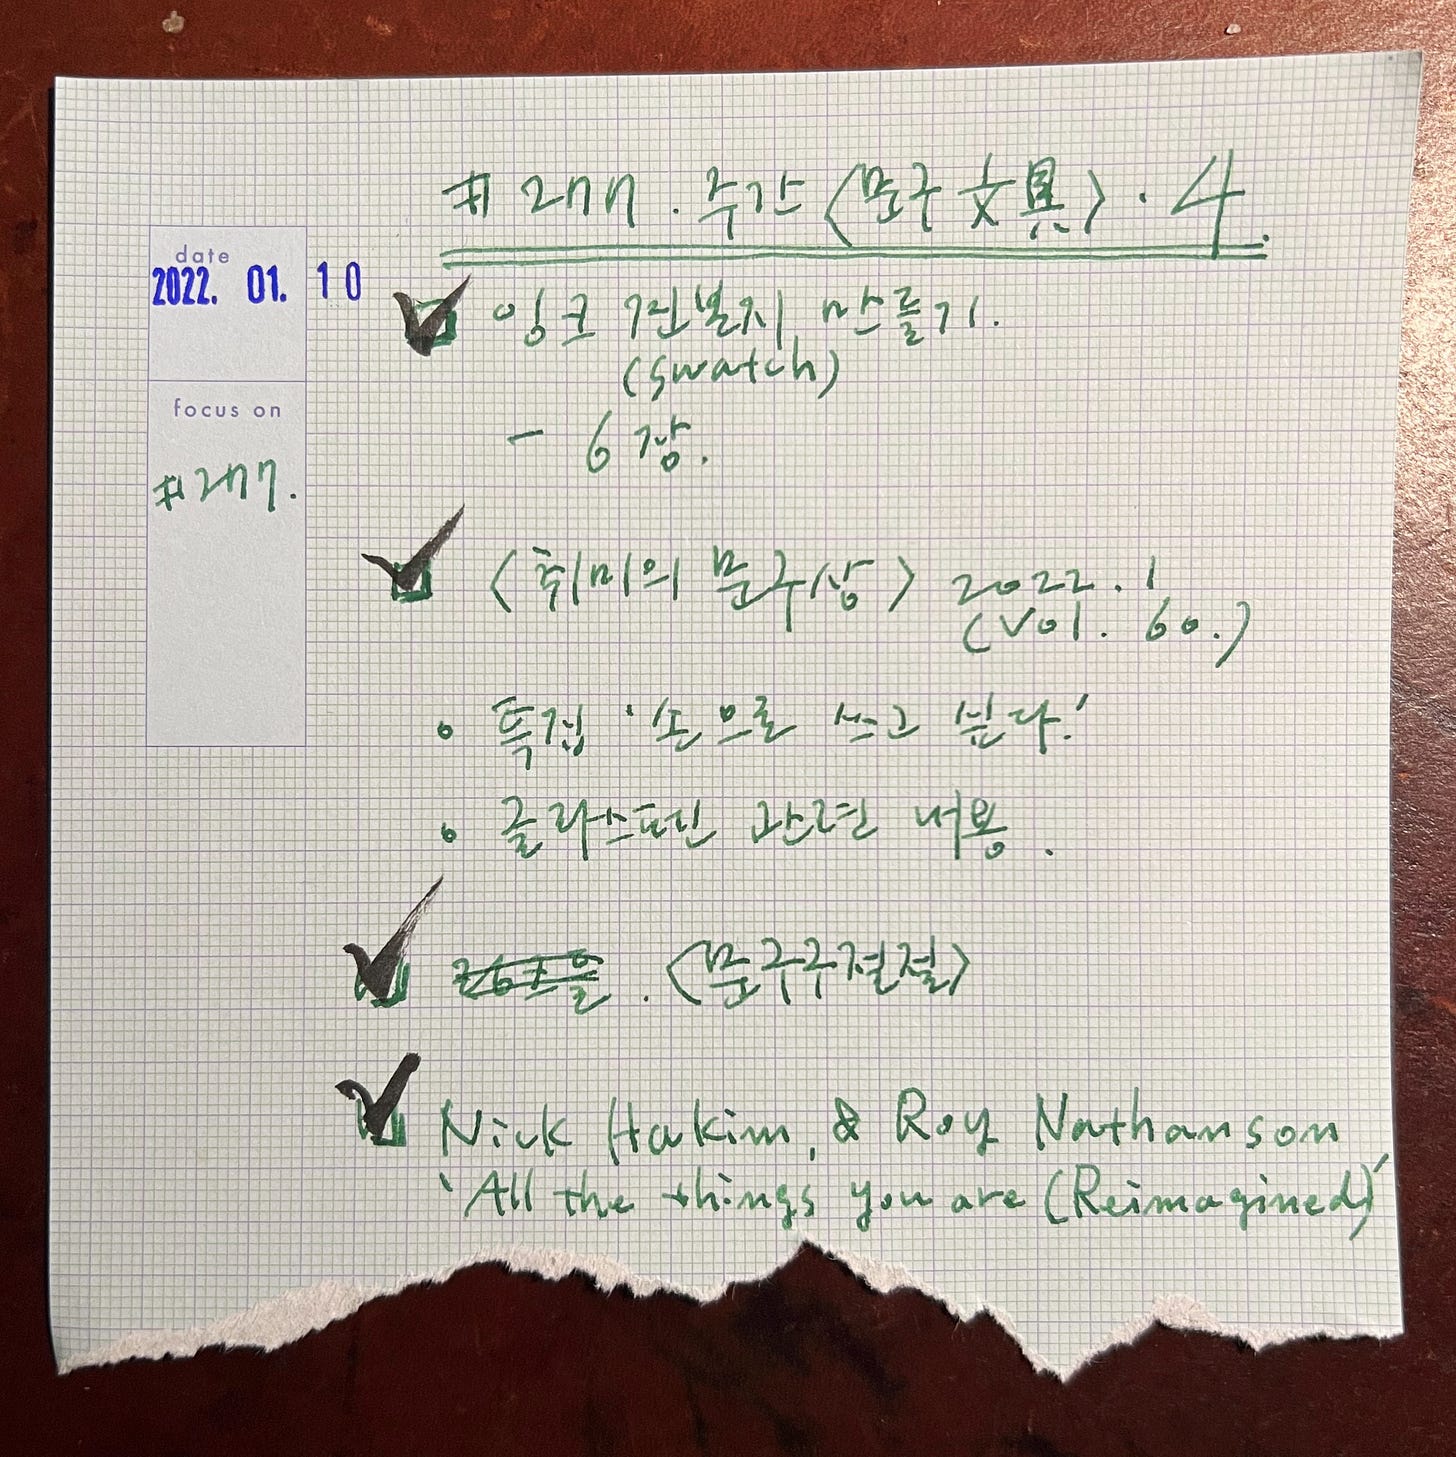 #277. 주간 〈문구 文具〉· 4.
date
2022. 01. 10
focus on
#277.
잉크 견본지 만들기.
(swatch)
- 6장.
〈취미의 문구상〉 2022. 1
(Vol. 60.)
• 특집 '손으로 쓰고 싶다.'
• 글라스펜 관련 내용.
. 〈문구구절절〉
Nick Hakim, & Roy Nathanson
'All the things you are (Reimagined)'